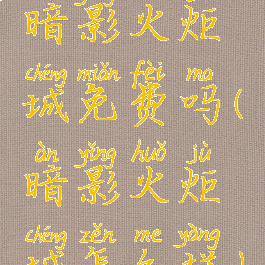 暗影火炬
chéng miǎn fèi ma
城免费吗(
àn yǐng huǒ jù
暗影火炬
chéng zěn me yàng
城怎么样)